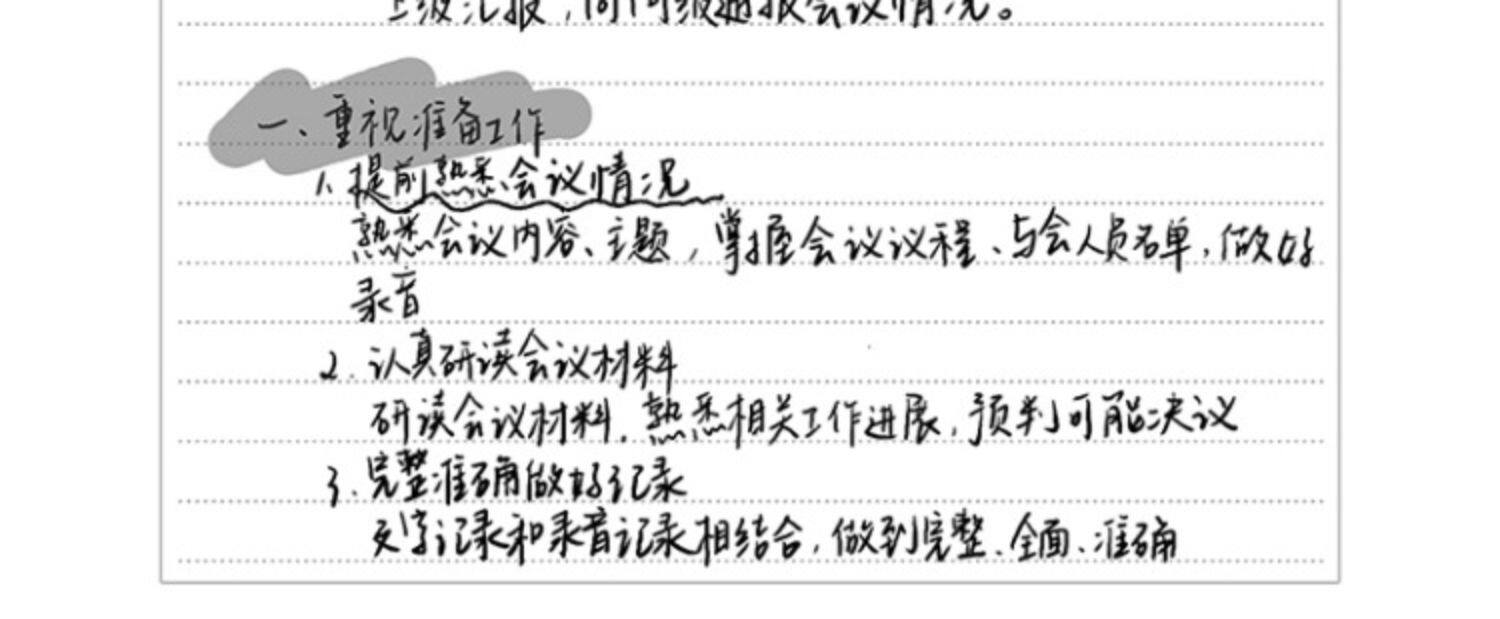 上级汇报，向同级通报会议情况。
一、重视准备工作
1、提前熟悉会议情况
熟悉会议内容、主题，掌握会议议程、与会人员名单，做好
录音
2、认真研读会议材料
研读会议材料，熟悉相关工作进展，预判可能决议
3、完整准确做好记录
文字记录和录音记录相结合，做到完整、全面、准确